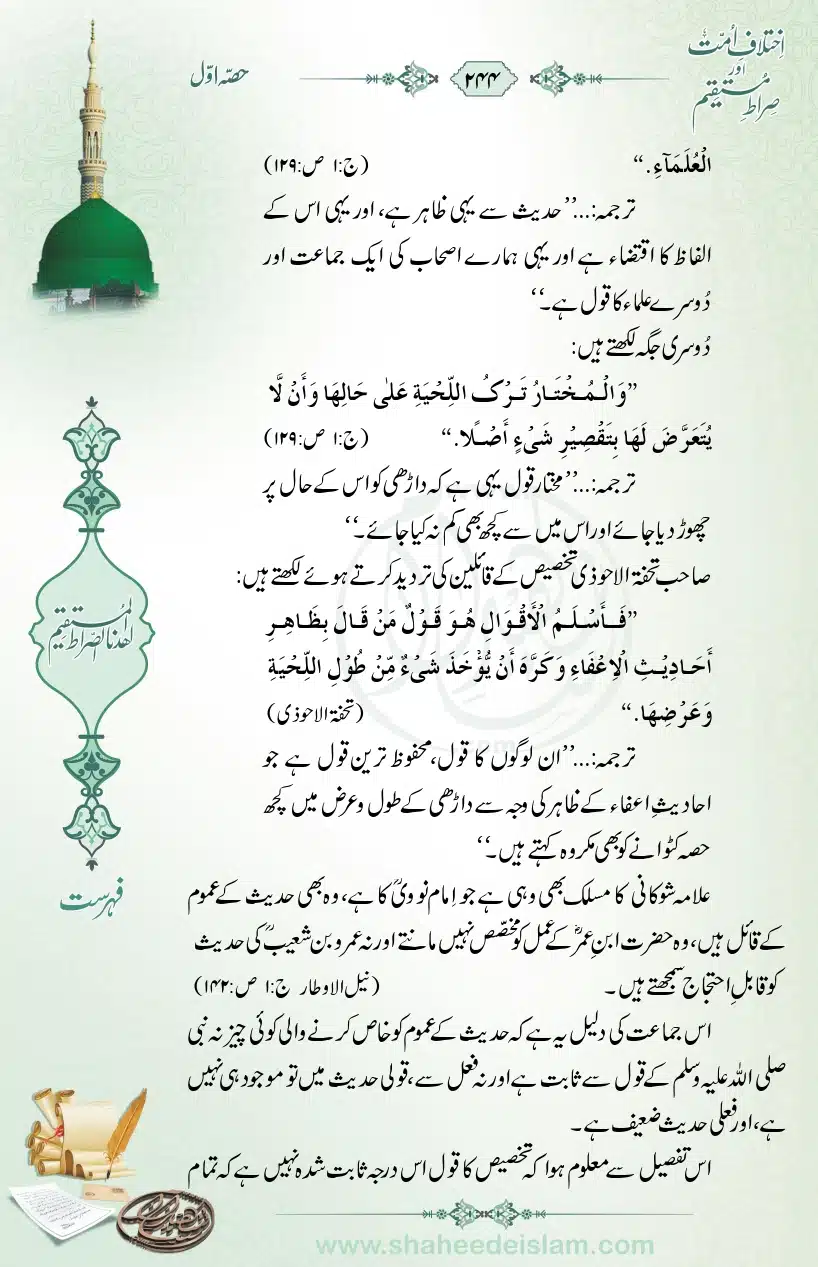 اِختلافِ اُمّت
اور
صِراطِ مُستقیم
۲۴۴
حصہ اوّل
الْعُلَمَآءِ.“ (ج:۱ ص:۱۲۹)
ترجمہ:...’’حدیث سے یہی ظاہر ہے، اور یہی اس کے
الفاظ کا اقتضاء ہے اور یہی ہمارے اصحاب کی ایک جماعت اور
دُوسرے علماء کا قول ہے۔‘‘
دُوسری جگہ لکھتے ہیں:
”وَالْمُخْتَارُ تَرْکُ اللِّحْیَةِ عَلٰی حَالِهَا وَأَنْ لَّا
یُتَعَرَّضَ لَهَا بِتَقْصِیْرِ شَیْءٍ أَصْلًا.“ (ج:۱ ص:۱۲۹)
ترجمہ:...’’مختار قول یہی ہے کہ داڑھی کو اس کے حال پر
چھوڑ دیا جائے اور اس میں سے کچھ بھی کم نہ کیا جائے۔‘‘
صاحب تحفۃ الاحوذی تخصیص کے قائلین کی تردید کرتے ہوئے لکھتے ہیں:
”فَأَسْلَمُ الْأَقْوَالِ هُوَ قَوْلٌ مَنْ قَالَ بِظَاهِرِ
أَحَادِیْثِ الْاِعْفَاءِ وَکَرَّهَ أَنْ یُّؤْخَذَ شَیْءٌ مِّنْ طُوْلِ اللِّحْیَةِ
وَعَرْضِهَا.“ (تحفۃ الاحوذی)
ترجمہ:...’’ان لوگوں کا قول، محفوظ ترین قول ہے جو
احادیثِ اعفاء کے ظاہر کی وجہ سے داڑھی کے طول و عرض میں کچھ
حصہ کٹوانے کو بھی مکروہ کہتے ہیں۔‘‘
علامہ شوکانی کا مسلک بھی وہی ہے جو اِمام نوویؒ کا ہے، وہ بھی حدیث کے عموم
کے قائل ہیں، وہ حضرت ابنِ عمرؓ کے عمل کو مخصّص نہیں مانتے اور نہ عمرو بن شعیبؒ کی حدیث
کو قابلِ احتجاج سمجھتے ہیں۔ (نیل الاوطار ج:۱ ص:۱۴۲)
اس جماعت کی دلیل یہ ہے کہ حدیث کے عموم کو خاص کرنے والی کوئی چیز نہ نبی
صلی اللہ علیہ وسلم کے قول سے ثابت ہے اور نہ فعل سے، قولی حدیث میں تو موجود ہی نہیں
ہے، اور فعلی حدیث ضعیف ہے۔
اس تفصیل سے معلوم ہوا کہ تخصیص کا قول اس درجہ ثابت شدہ نہیں ہے کہ تمام
اھدنا الصّراط المُستقیم
فہرست
www.shaheedeislam.com